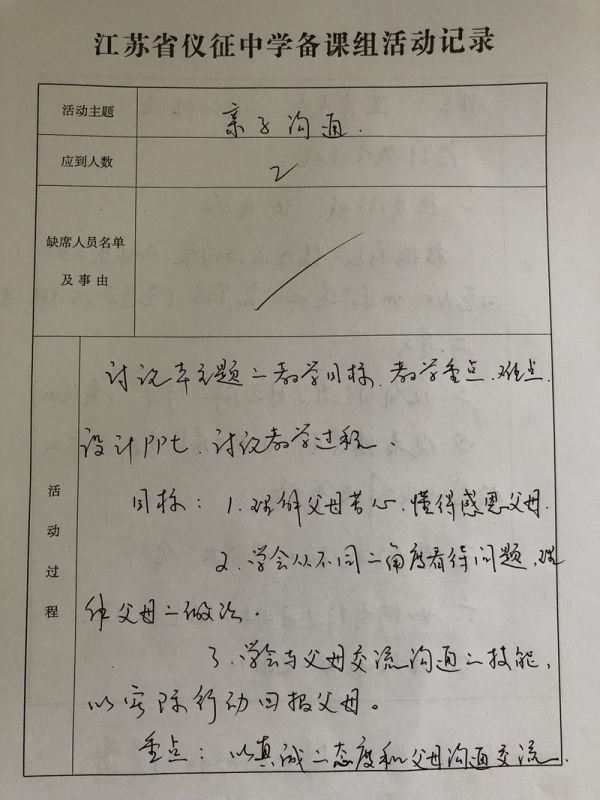 江苏省仪征中学备课组活动记录
活动主题
亲子沟通.
应到人数
2
缺席人员名单
及事由
活动过程
讨论本主题二教学目标、教学重点、难点.
设计PPt、讨论教学过程、
目标：1.理解父母苦心、懂得感恩父母.
2.学会从不同二角度看待问题，理
解父母二做法.
3.学会与父母交流沟通二技能，
以实际行动回报父母。
重点：以真诚二态度和父母沟通交流.